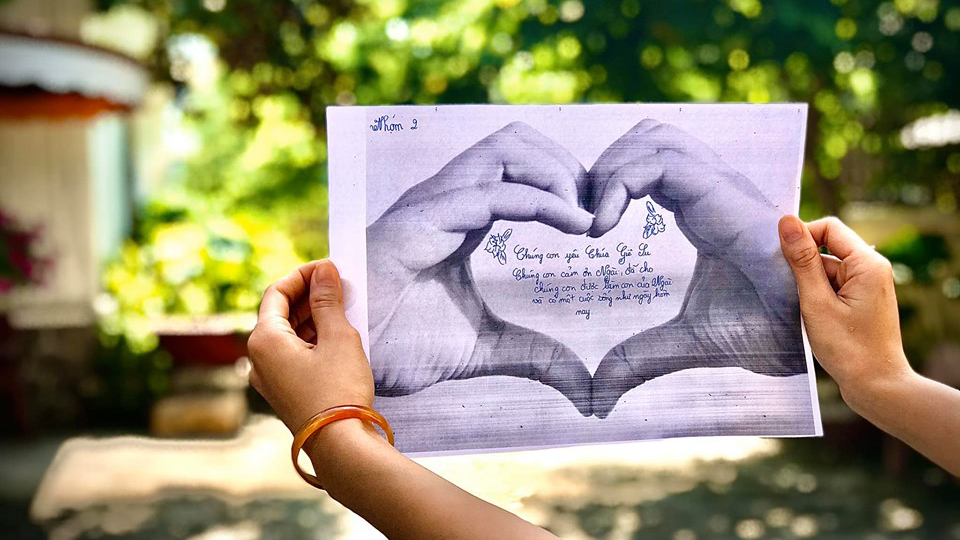 Nhóm 2
Chúng con yêu Chúa Giê Su
Chúng con cảm ơn Ngài, đã cho
chúng con được làm con của Ngài
và có một cuộc sống như ngày hôm
nay